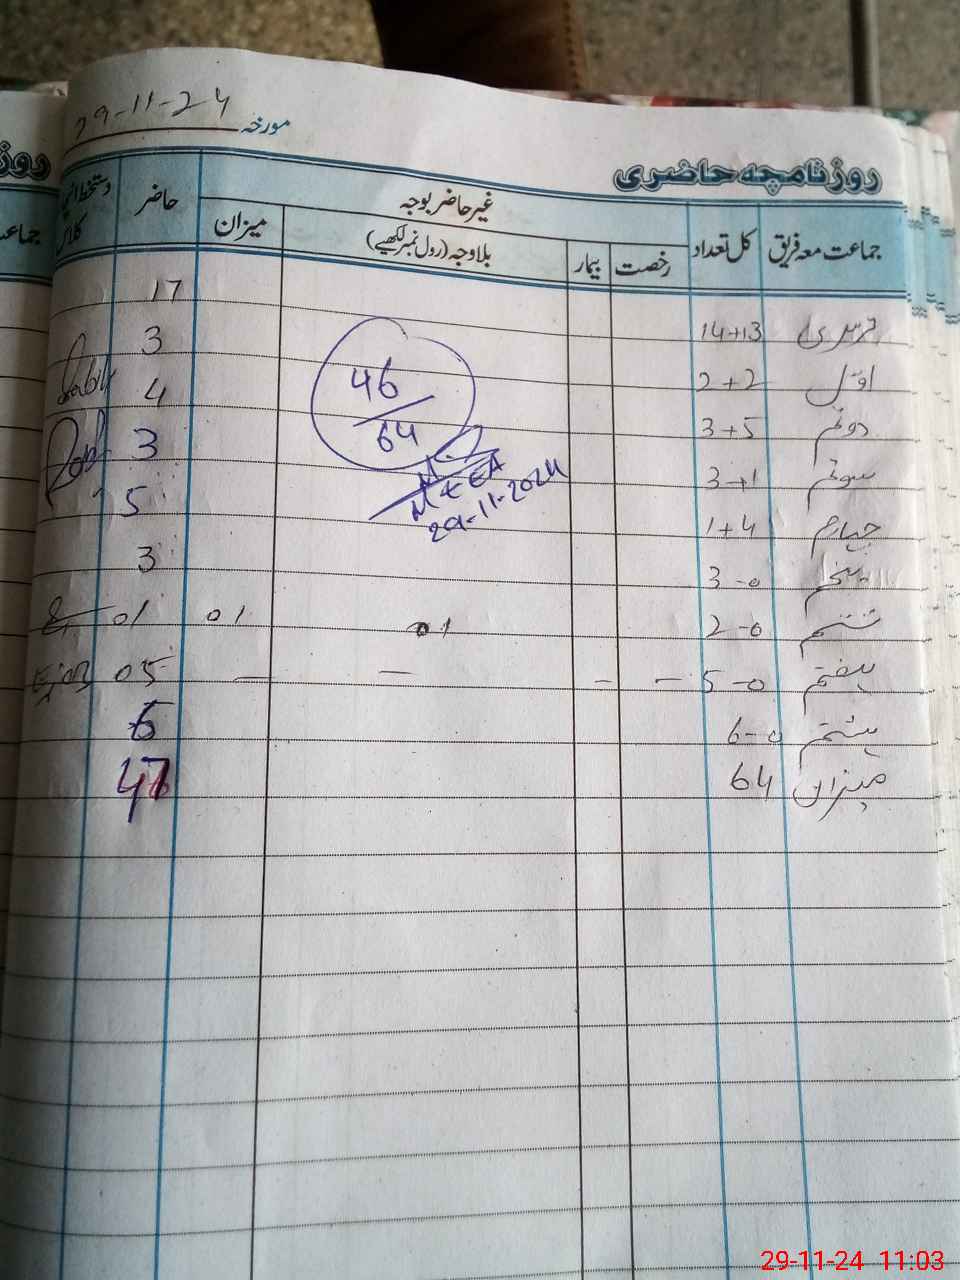 مورخہ 29-11-24
روزنامچہ حاضری
جماعت معہ فریق کل تعداد غیر حاضر بوجہ حاضر دستخط
رخصت بیمار بلاوجہ (رول نمبر لکھیے) میزان کلاس
نرسری 14+13 17
اول 2+2 3
دوئم 3+5 4
سوئم 3+1 3
چہارم 1+4 5
پنجم 3-0 3
ششم 2-0 01 01 01
ہفتم 5-0 - - - - 05
ہشتم 6-0 6
میزان 64 47
46
64
M&EA
29-11-2024
روز
جماعت
29-11-24 11:03